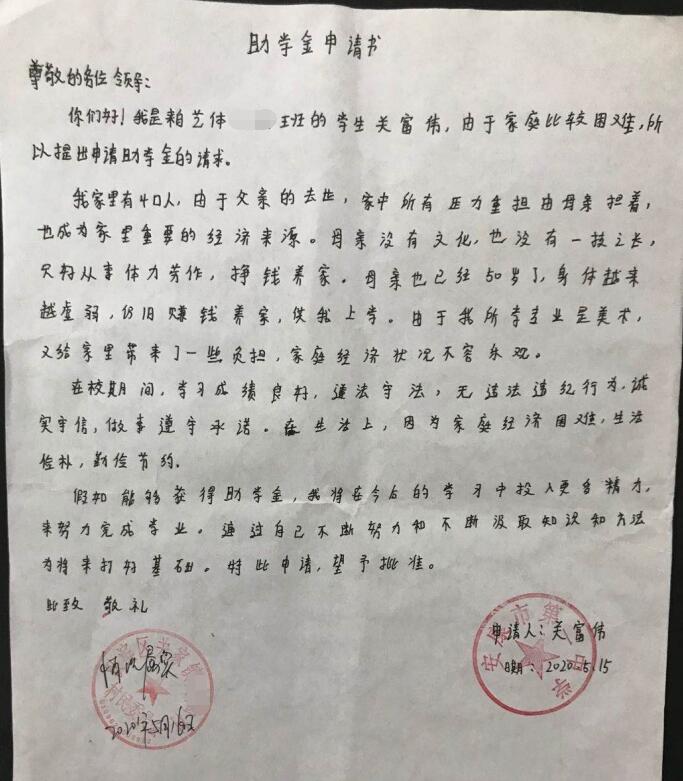 助学金申请书
尊敬的各位领导:
你们好!我是来自艺体 班的学生关富伟,由于家庭比较困难,所
以提出申请助学金的请求。
我家里有4口人,由于父亲的去世,家中所有压力重担由母亲担着,
也成为家里重要的经济来源。母亲没有文化,也没有一技之长,
只好从事体力劳作,挣钱养家。母亲也已经50岁了,身体越来
越虚弱,仍旧赚钱养家,供我上学。由于我所学专业是美术,
又给家里带来了一些负担,家庭经济状况不容乐观。
在校期间,学习成绩良好,遵法守法,无违法违纪行为,诚
实守信,做事遵守承诺。在生活上,因为家庭经济困难,生活
俭朴,勤俭节约。
假如能够获得助学金,我将在今后的学习中投入更多精力,
来努力完成学业。通过自己不断努力和不断汲取知识和方法
为将来打好基础。特此申请,望予批准。
此致 敬礼
申请人:关富伟
日期:2020.5.15
情况属实
2020年5月16日
村民委
安康市第 中学